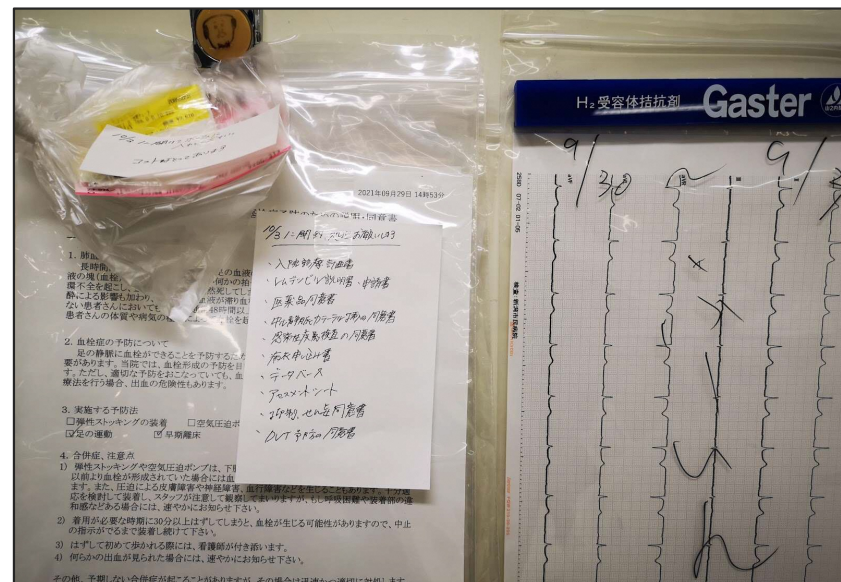 2021年09月29日 14時53分
説明・同意書
10/3 に開封
コストがとってあります
10/3 に開封 対応 お願いします
・入院診療計画書
・レムデシビル説明書・申請書
・医薬品同意書
・中心静脈カテーテル挿入の同意書
・感染性疾患検査の同意書
・病衣申し込み書
・データベース
・アセスメントシート
・抑制、せん妄同意書
・DVT予防の同意書
1. 肺血
長時間
液の塊(血栓
との血液
何かの拍
還不全を起こし
突然死してし
酔による影響も加わり、
血液が滞り血
ない患者さんにおいても
48時間以
患者さんの体質や病気の
栓を起
2. 血栓症の予防について
足の静脈に血栓ができることを予防する
要があります。当院では、血栓形成の予防を目
す。ただし、適切な予防をおこなっていても、血
療法を行う場合、出血の危険性もあります。
3. 実施する予防法
□弾性ストッキングの装着 □空気圧迫ポ
☑足の運動 ☑早期離床
4. 合併症、注意点
1) 弾性ストッキングや空気圧迫ポンプは、下肢
以前より血栓が形成されていた場合には血
ます。また、圧迫による皮膚障害や神経障害、血行障害などを生じることもあります。十分適
応を検討して装着し、スタッフが注意して観察してまいりますが、もし呼吸困難や装着部の違
和感などある場合には、速やかにお知らせ下さい。
2) 着用が必要な時期に30分以上はずしてしまうと、血栓が生じる可能性がありますので、中止
の指示がでるまで装着し続けて下さい。
3) はずして初めて歩かれる際には、看護師が付き添います。
4) 何らかの出血が見られた場合には、速やかにお知らせ下さい。
その他、予期しない合併症が起こることがありますが、その場合は迅速かつ適切に対処します
H₂受容体拮抗剤 Gaster
9/30
9/
aVF
2500 07-02 01-05
検査:新潟市民病院